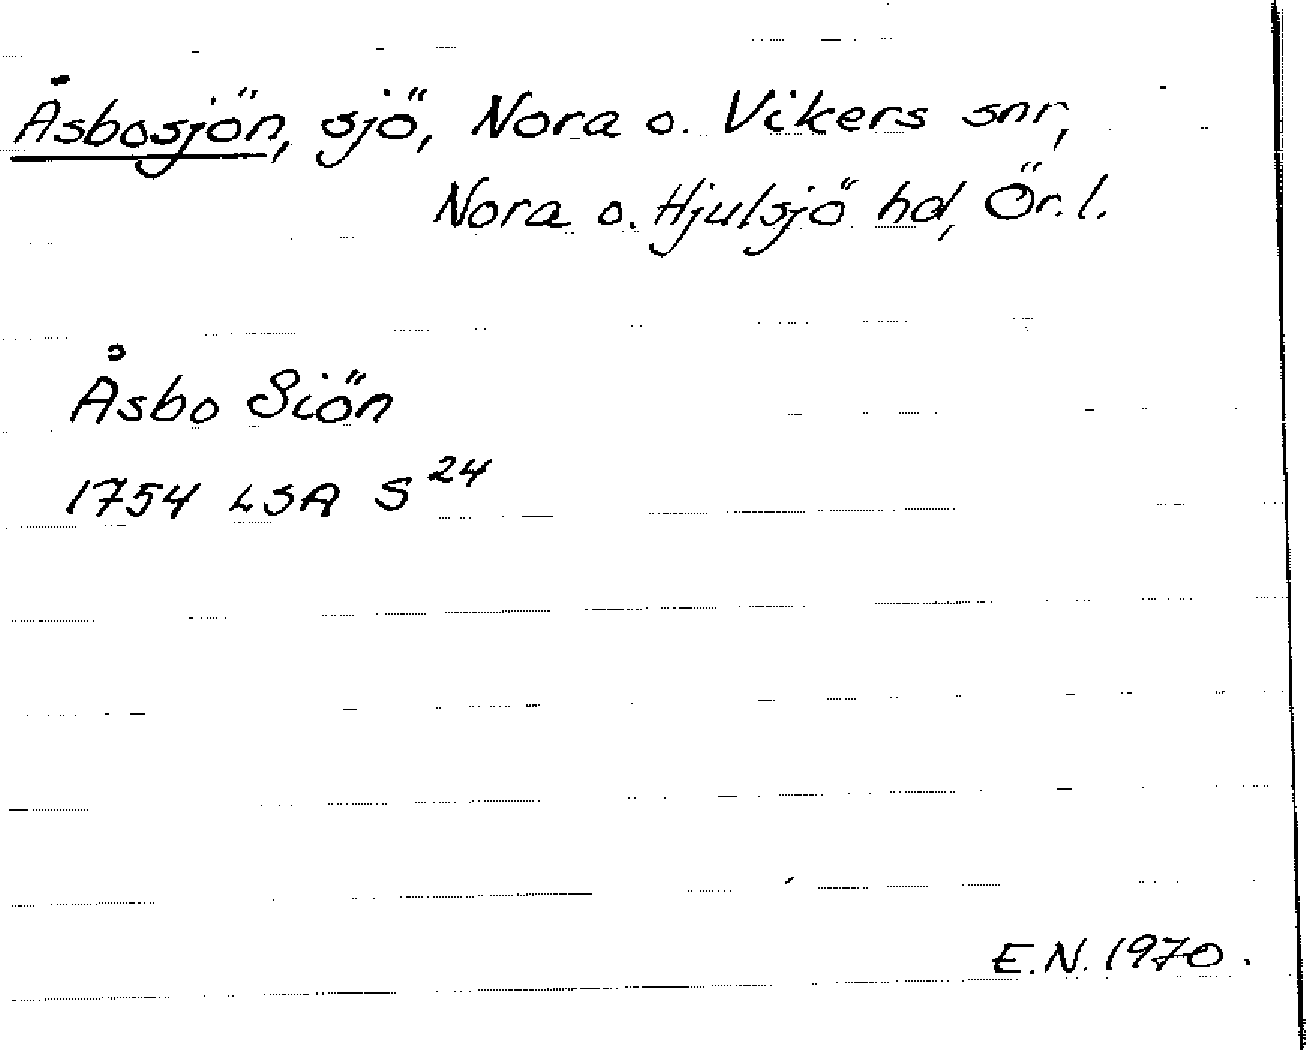 Åsbosjön, sjö, Nora o. Vikers snr,
Nora o. Hjulsjö hd, Ör. l.
Åsbo Siön
1754 LSA S 24
E.N. 1970.